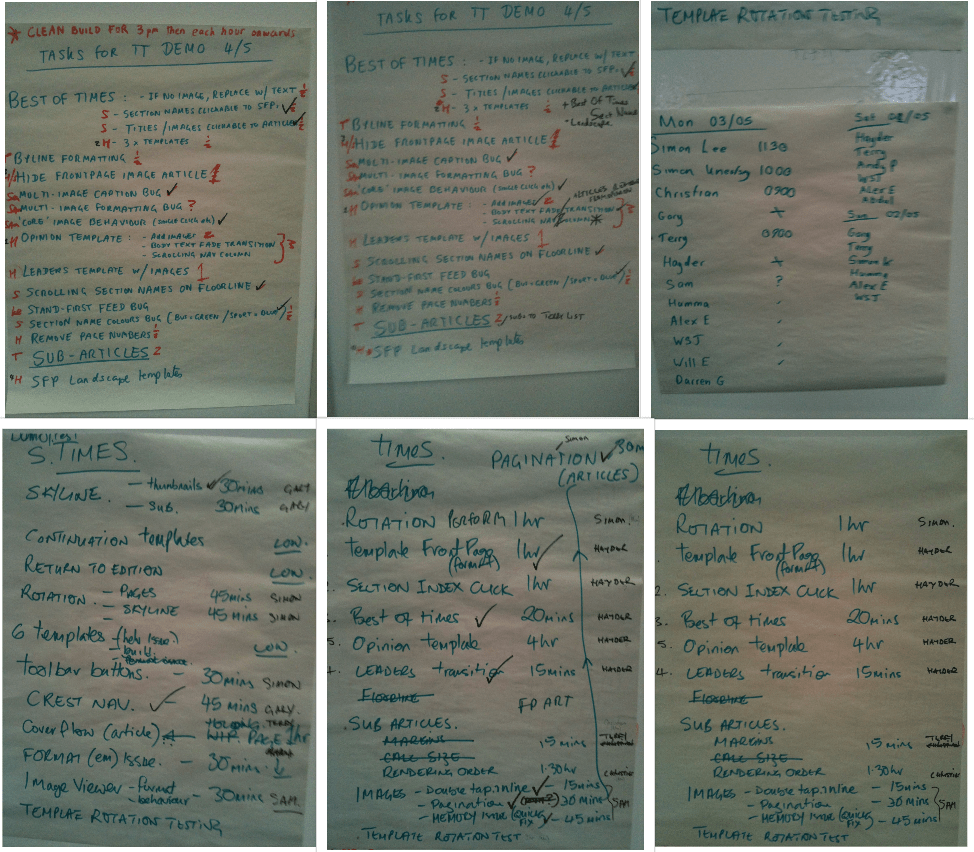 * CLEAN BUILD FOR 3pm then each hour onwards
TASKS FOR TT DEMO 4/5
BEST OF TIMES : - IF NO IMAGE, REPLACE W/ TEXT
S - SECTION NAMES CLICKABLE TO SFP.
S - TITLES/IMAGES CLICKABLE TO ARTICLE
H - 3 x TEMPLATES
T BYLINE FORMATTING
HIDE FRONTPAGE IMAGE ARTICLE 1
MULTI-IMAGE CAPTION BUG ✓
MULTI-IMAGE FORMATTING BUG ?
IMAGE BEHAVIOUR (SINGLE CLICK ON) ✓
H OPINION TEMPLATE : - ADD IMAGES 2
- BODY TEXT FADE TRANSITION
- SCROLLING NAV COLUMN
3
H LEADERS TEMPLATE W/ IMAGES 1
S SCROLLING SECTION NAMES ON FLOORLINE ✓
STAND-FIRST FEED BUG
S SECTION NAME COLOURS BUG (BUS=GREEN / SPORT=BLUE)
H REMOVE PAGE NUMBERS
T SUB-ARTICLES 2
H SFP Landscape templates
TASKS FOR TT DEMO 4/5
BEST OF TIMES : - IF NO IMAGE, REPLACE W/ TEXT
S - SECTION NAMES CLICKABLE TO SFP.
S - TITLES/IMAGES CLICKABLE TO ARTICLE
H - 3 x TEMPLATES + Best Of Times
Sect Name
- Landscape
T BYLINE FORMATTING
HIDE FRONTPAGE IMAGE ARTICLE 1
MULTI-IMAGE CAPTION BUG ✓
MULTI-IMAGE FORMATTING BUG ?
IMAGE BEHAVIOUR (SINGLE CLICK ON) ✓
H OPINION TEMPLATE : - ADD IMAGES 2
- BODY TEXT FADE TRANSITION
- SCROLLING NAV COLUMN *
3
H LEADERS TEMPLATE W/ IMAGES 1
S SCROLLING SECTION NAMES ON FLOORLINE ✓
STAND-FIRST FEED BUG
S SECTION NAME COLOURS BUG (BUS=GREEN / SPORT=BLUE)
H REMOVE PAGE NUMBERS
T SUB-ARTICLES 2
SFP Landscape templates
TEMPLAE ROTATION TESTING
Mon 03/05
Simon Lee 1130
Simon 1000
Christian 0900
Gary x
Terry 0900
Hayder x
Sam ?
Humma
Alex E
WSJ
Will E
Darren G
Hayder
Terry
Andy P
WSJ
Alex E
Abdul
Sun 02/05
Gary
Terry
Simon
Humma
Alex E
WSJ
S. TIMES.
SKYLINE. - thumbnails ✓ 30mins GARY
- SUB. 30mins GARY
CONTINUATION templates LOW.
RETURN TO EDITION LOW.
ROTATION - PAGES 45mins SIMON
- SKYLINE 45 MINS SIMON
6 templates LOW.
toolbar buttons. - 30mins SIMON
CREST NAV. ✓ - 45 mins GARY.
Coverflow (article)
FORMAT (em) ISSUE. - 30mins.
Image Viewer - format
behaviour - 30mins SAM
TEMPLAE ROTATION TESTING
times. Simon
PAGINATION ✓ 30m
(ARTICLES)
ROTATION PERFORM 1hr Simon.
Template Front Page 1hr ✓ HAYDER
(format)
2. SECTION INDEX CLICK 1hr HAYDER
3. Best of times ✓ 20mins HAYDER
5. Opinion template 4hr HAYDER
4. LEADERS transition ✓ 15mins HAYDER
FP ART
SUB ARTICLES.
MARGINS 15mins
CALL SIZE
RENDERING ORDER 1·30hr
IMAGES - Double tap. inline ✓ - 15mins
- Pagination ✓ 30mins SAM
- MEMORY (QUICK FIX) ✓ - 45mins
TEMPLATE ROTATION TEST
times.
ROTATION 1hr Simon.
Template Front Page 1hr HAYDER
(format)
2. SECTION INDEX CLICK 1hr HAYDER
3. Best of times 20mins HAYDER
5. Opinion template 4hr HAYDER
4. LEADERS transition 15mins HAYDER
SUB ARTICLES.
MARGINS 15mins
CALL SIZE
RENDERING ORDER 1·30hr
IMAGES - Double tap. inline - 15mins
- Pagination - 30mins SAM
- MEMORY (QUICK FIX) - 45mins
TEMPLATE ROTATION TEST